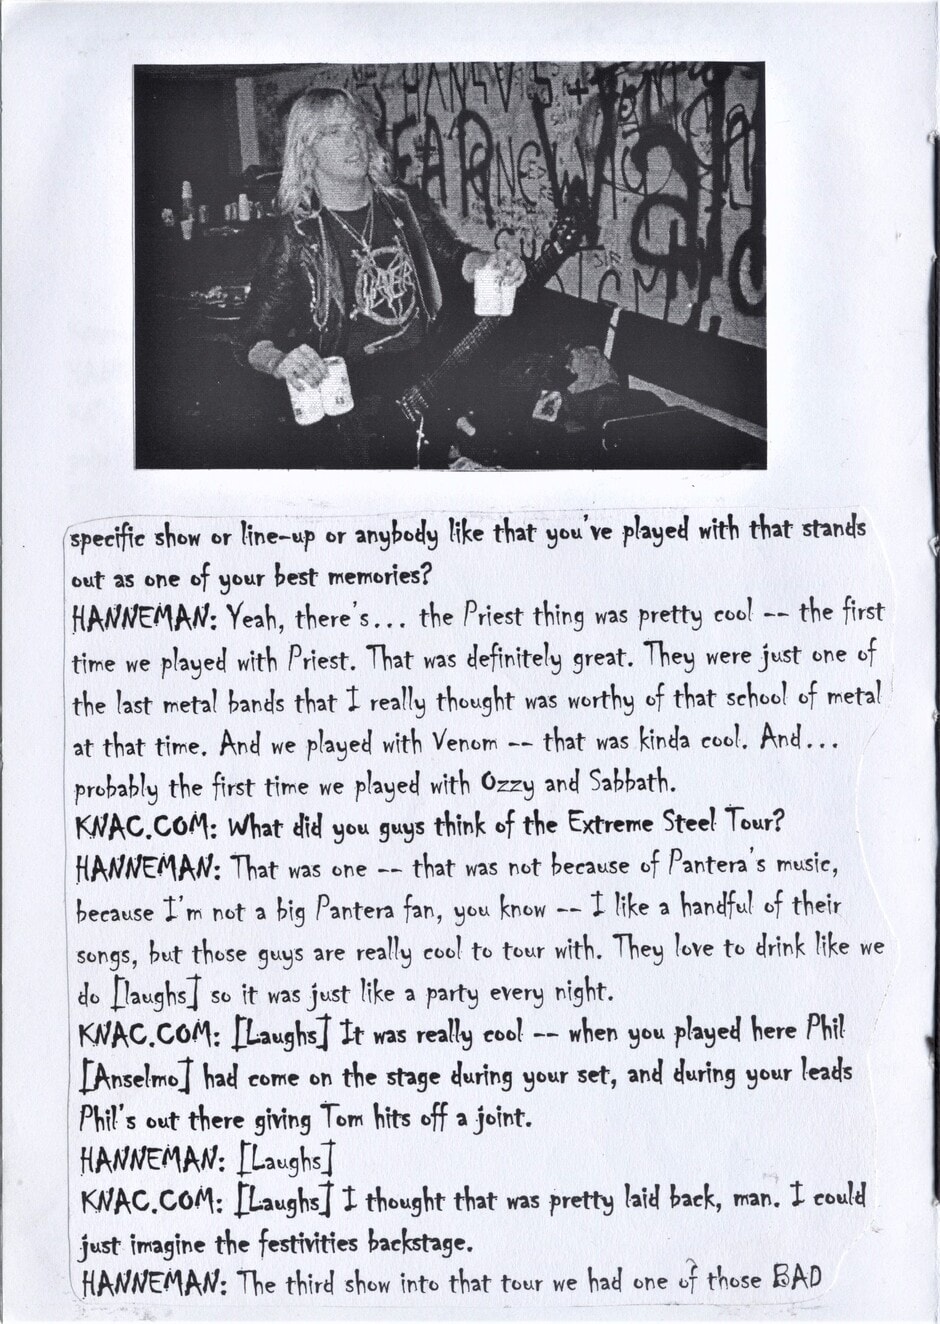 SLAYER
specific show or line-up or anybody like that you've played with that stands
out as one of your best memories?
HANNEMAN: Yeah, there's... the Priest thing was pretty cool -- the first
time we played with Priest. That was definitely great. They were just one of
the last metal bands that I really thought was worthy of that school of metal
at that time. And we played with Venom -- that was kinda cool. And...
probably the first time we played with Ozzy and Sabbath.
KNAC.COM: What did you guys think of the Extreme Steel Tour?
HANNEMAN: That was one -- that was not because of Pantera's music,
because I'm not a big Pantera fan, you know -- I like a handful of their
songs, but those guys are really cool to tour with. They love to drink like we
do [laughs] so it was just like a party every night.
KNAC.COM: [Laughs] It was really cool -- when you played here Phil
[Anselmo] had come on the stage during your set, and during your leads
Phil's out there giving Tom hits off a joint.
HANNEMAN: [Laughs]
KNAC.COM: [Laughs] I thought that was pretty laid back, man. I could
just imagine the festivities backstage.
HANNEMAN: The third show into that tour we had one of those BAD